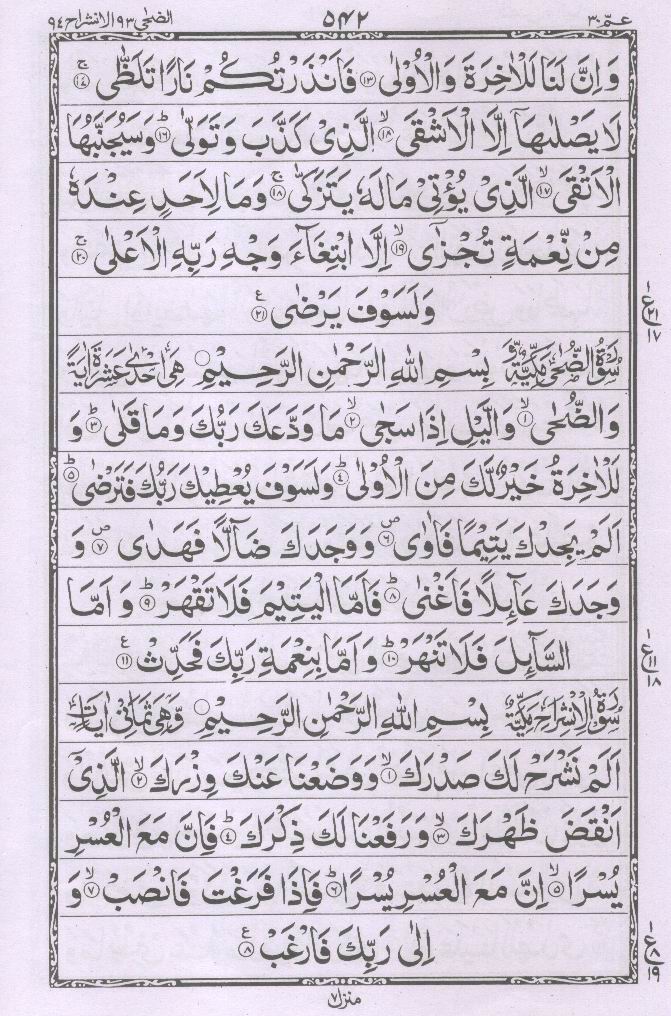 عمّ ٣٠ ۵۴۲ الضحى ٩٣ الانشراح ٩٤
وَ اِنَّ لَنَا لَلْاٰخِرَةَ وَالْاُوْلٰى ﴿۱۳﴾ فَاَنْذَرْتُكُمْ نَارًا تَلَظّٰى ﴿۱۴﴾ ج
لَا يَصْلٰىهَاۤ اِلَّا الْاَشْقَى ﴿۱۵﴾ ۙ الَّذِىْ كَذَّبَ وَ تَوَلّٰى ﴿۱۶﴾ ؕ وَسَيُجَنَّبُهَا
الْاَتْقَى ﴿۱۷﴾ ۙ الَّذِىْ يُؤْتِىْ مَالَهٗ يَتَزَكّٰى ﴿۱۸﴾ ج وَمَا لِاَحَدٍ عِنْدَهٗ
مِنْ نِّعْمَةٍ تُجْزٰٓى ﴿۱۹﴾ ۙ اِلَّا ابْتِغَآءَ وَجْهِ رَبِّهِ الْاَعْلٰى ﴿۲۰﴾ ج
وَلَسَوْفَ يَرْضٰى ﴿۲۱﴾ ع
ع ٢١ ١٧
سُوْرَةُ الضُّحٰى مَكِّيَّةٌ وَّ بِسْمِ اللّٰهِ الرَّحْمٰنِ الرَّحِيْمِ هِىَ اِحْدٰى عَشَرَةَ اٰيَةً
وَالضُّحٰى ﴿۱﴾ ۙ وَالَّيْلِ اِذَا سَجٰى ﴿۲﴾ ۙ مَا وَدَّعَكَ رَبُّكَ وَمَا قَلٰى ﴿۳﴾ ؕ وَ
لَلْاٰخِرَةُ خَيْرٌ لَّكَ مِنَ الْاُوْلٰى ﴿۴﴾ ؕ وَلَسَوْفَ يُعْطِيْكَ رَبُّكَ فَتَرْضٰى ﴿۵﴾ ؕ
اَلَمْ يَجِدْكَ يَتِيْمًا فَاٰوٰى ﴿۶﴾ ص وَوَجَدَكَ ضَآلًّا فَهَدٰى ﴿۷﴾ ص وَ
وَجَدَكَ عَآئِلًا فَاَغْنٰى ﴿۸﴾ ؕ فَاَمَّا الْيَتِيْمَ فَلَا تَقْهَرْ ﴿۹﴾ ؕ وَ اَمَّا
السَّآئِلَ فَلَا تَنْهَرْ ﴿۱۰﴾ ؕ وَ اَمَّا بِنِعْمَةِ رَبِّكَ فَحَدِّثْ ﴿۱۱﴾ ع
ع ١١ ١٨
سُوْرَةُ الْاِنْشِرَاحِ مَكِّيَّةٌ بِسْمِ اللّٰهِ الرَّحْمٰنِ الرَّحِيْمِ وَّهِىَ ثَمَانِىْ اٰيَاتٍ
اَلَمْ نَشْرَحْ لَكَ صَدْرَكَ ﴿۱﴾ ۙ وَوَضَعْنَا عَنْكَ وِزْرَكَ ﴿۲﴾ ۙ الَّذِىْۤ
اَنْقَضَ ظَهْرَكَ ﴿۳﴾ ۙ وَرَفَعْنَا لَكَ ذِكْرَكَ ﴿۴﴾ ؕ فَاِنَّ مَعَ الْعُسْرِ
يُسْرًا ﴿۵﴾ ۙ اِنَّ مَعَ الْعُسْرِ يُسْرًا ﴿۶﴾ ؕ فَاِذَا فَرَغْتَ فَانْصَبْ ﴿۷﴾ ۙ وَ
اِلٰى رَبِّكَ فَارْغَبْ ﴿۸﴾ ع
ع ٨ ١٩
منزل ٧